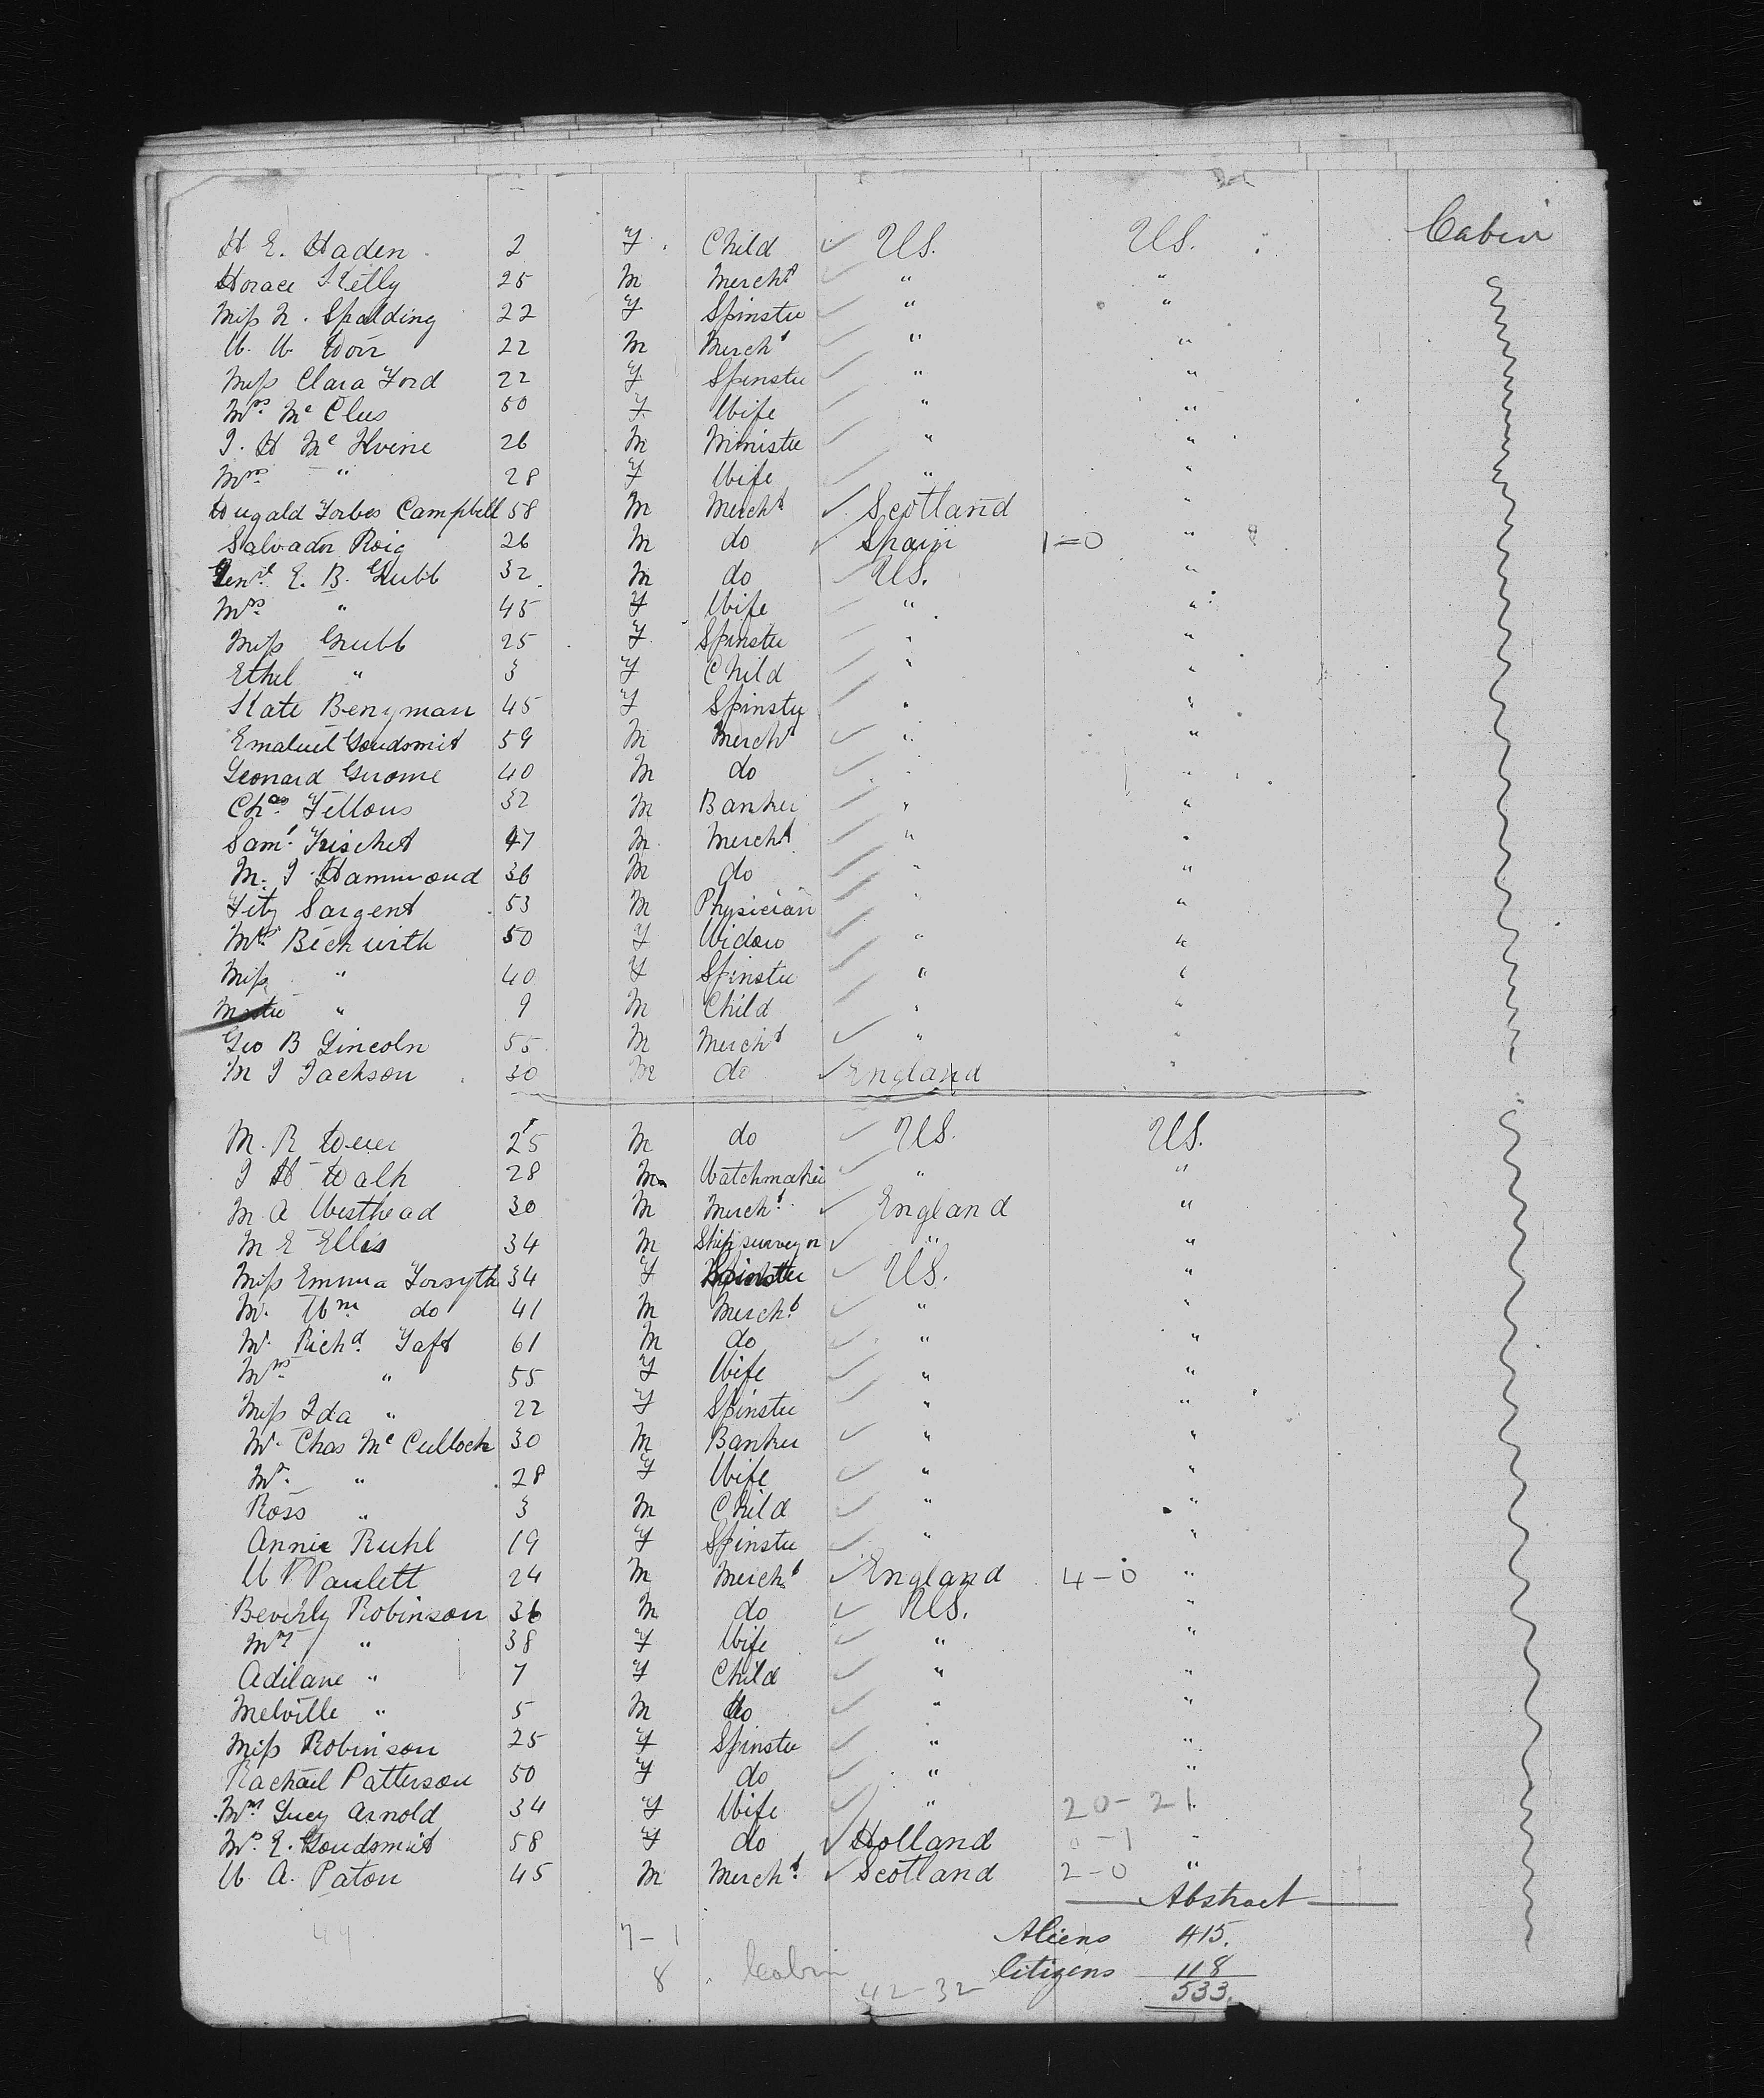 Cabin
H E. Haden 2 F Child U.S. U.S.
Horace Kelly 25 M Mercht " "
Miss N. Spalding 22 F Spinster " "
W. W. Dorr 22 M Mercht " "
Miss Clara Ford 22 F Spinster " "
Mrs. Mc Clees 50 F Wife " "
J. H Mc Ilvine 26 M Minister " "
Mrs. " 28 F Wife " "
Dugald Forbes Campbell 58 M Mercht Scotland "
Salvador Roig 26 M do Spain 1-0 "
Genrl E. B. Grubb 32 M do U.S. "
Mrs " 45 F Wife " "
Miss Grubb 25 F Spinster " "
Ethel " 3 F Child " "
Kate Benyman 45 F Spinster " "
Emaluel Goudsmit 59 M Mercht " "
Leonard Gerome 40 M do " "
Chas Fellows 32 M Banker " "
Saml Frischet 47 M Mercht " "
M. J Hammond 36 M do " "
Fitz Sargent 53 M Physician " "
Mrs Beckwith 50 F Widow " "
Miss " 40 F Spinster " "
Master " 9 M Child " "
Geo B Lincoln 55 M Mercht " "
M J Jackson 30 M do England "
M. R 25 M do U.S. U.S.
J H Walk 28 M Watchmaker " "
M. A Westhead 30 M Mercht. England "
M E Ellis 34 M Ship surveyor " "
Miss Emma Forsyth 34 F Spinster U.S. "
Mr. Wm do 41 M Mercht " "
Mr. Richd. Taft 61 M do " "
Mrs " 55 F Wife " "
Miss Ida " 22 F Spinster " "
Mr. Chas Mc Culloch 30 M Banker " "
Mrs. " 28 F Wife " "
Ross " 3 M Child " "
Annie Ruhl 19 F Spinster " "
W V Paulett 24 M Mercht England 4-0 "
Beverly Robinson 36 M do U.S. "
Mrs " 38 F Wife " "
Adilane " 7 F Child " "
Melville " 5 M do " "
Miss Robinson 25 F Spinster " "
Rachael Patterson 50 F do " "
Mrs Lucy Arnold 34 F Wife " 20-21
Mrs. E. Goudsmit 58 F do Holland 0-1 "
W. A. Paton 45 M Mercht. Scotland 2-0 "
Abstract
44 7-1 Aliens 415.
8 Cabin 42-32 Citizens 118
533.